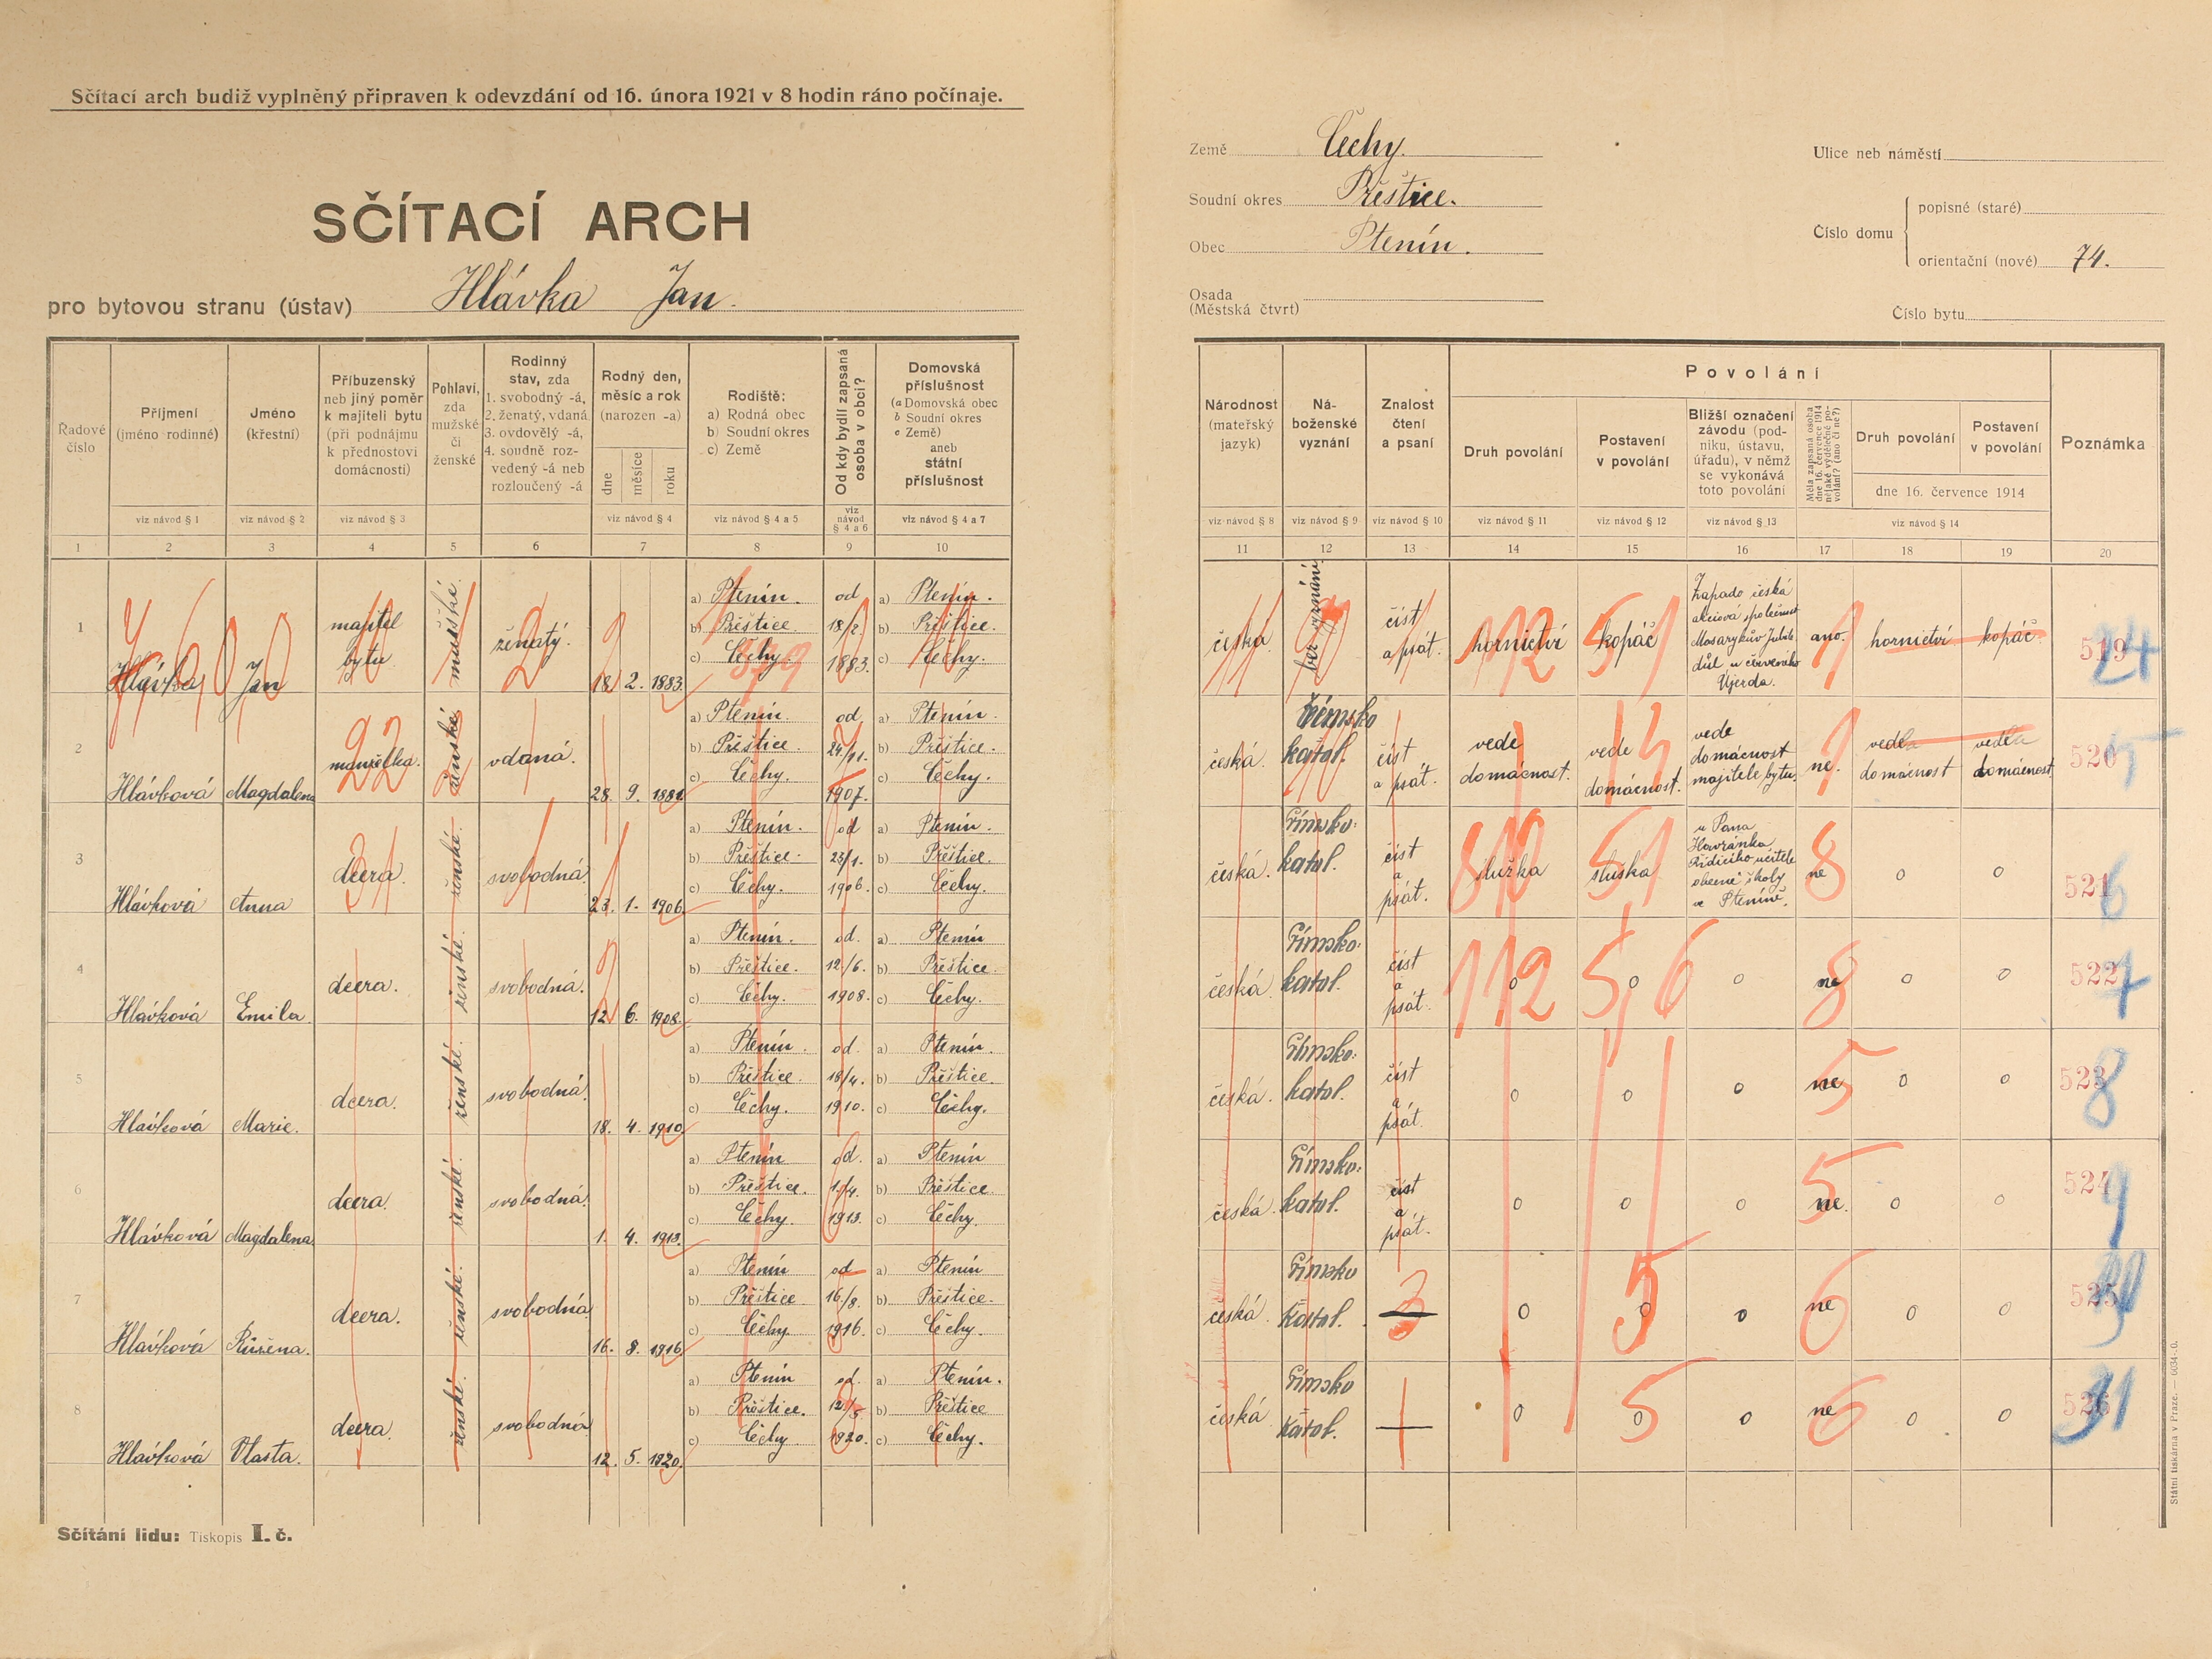 Sčítací arch budiž vyplněný připraven k odevzdání od 16. února 1921 v 8 hodin ráno počínaje.
SČÍTACÍ ARCH
pro bytovou stranu (ústav) Hlávka Jan.
Země Čechy.
Soudní okres Přeštice.
Obec Ptenín.
Osada
(Městská čtvrt)
Ulice neb náměstí
Číslo domu
popisné (staré)
orientační (nové) 74.
Číslo bytu
Řadové číslo
Příjmení (jméno rodinné)
Jméno (křestní)
Příbuzenský neb jiný poměr k majiteli bytu (při podnájmu k přednostovi domácnosti)
Pohlaví, zda mužské či ženské
Rodinný stav, zda 1. svobodný -á, 2. ženatý, vdaná, 3. ovdovělý -á, 4. soudně rozvedený -á neb rozloučený -á
Rodný den, měsíc a rok (narozen -a)
dne měsíce roku
Rodiště: a) Rodná obec b) Soudní okres c) Země
Od kdy bydlí zapsaná osoba v obci?
Domovská příslušnost (a Domovská obec b Soudní okres c Země) aneb státní příslušnost
Národnost (mateřský jazyk)
Náboženské vyznání
Znalost čtení a psaní
Povolání
Druh povolání
Postavení v povolání
Bližší označení závodu (podniku, ústavu, úřadu), v němž se vykonává toto povolání
Měla zapsaná osoba dne 16. července 1914 nějaké výdělečné povolání? (ano či ne?)
Druh povolání
Postavení v povolání
dne 16. července 1914
Poznámka
viz návod § 1 viz návod § 2 viz návod § 3 viz návod § 4 viz návod § 4 a 5 viz návod § 4 a 6 viz návod § 4 a 7
viz návod § 8 viz návod § 9 viz návod § 10 viz návod § 11 viz návod § 12 viz návod § 13 viz návod § 14
1 2 3 4 5 6 7 8 9 10
11 12 13 14 15 16 17 18 19 20
1 Hlávka Jan majitel bytu mužské ženatý. 18. 2. 1883. a) Ptenín. b) Přeštice. c) Čechy. od 18/2 1883. a) Ptenín. b) Přeštice. c) Čechy.
česká bez vyznání číst a psát. hornictví kopáč Západo česká akciová společnost Masarykův Jubil. důl u červeného Újezda. ano. hornictví kopáč. 519 24
2 Hlávková Magdalena manželka. ženské vdaná. 28. 9. 1881 a) Ptenín. b) Přeštice c) Čechy. od 24/11. 1907. a) Ptenín. b) Přeštice. c) Čechy.
česká. Římsko katol. číst a psát. vede domácnost. vede domácnost. vede domácnost majitele bytu. ne. vedla domácnost vedla domácnost 520 5
3 Hlávková Anna dcera. ženské. svobodná. 23. 1. 1906. a) Ptenín. b) Přeštice. c) Čechy. od 23/1. 1906. a) Ptenín. b) Přeštice. c) Čechy.
česká. římsko. katol. číst a psát. služka služka u Pana Havránka Řídícího učitele obecné školy ve Pteníně. ne o o 521 6
4 Hlávková Emila. dcera. ženské. svobodná. 12. 6. 1908. a) Ptenín. b) Přeštice. c) Čechy. od. 12./6. 1908. a) Ptenín b) Přeštice. c) Čechy.
česká. římsko. katol. číst a psát. o o o ne o o 522 7
5 Hlávková Marie. dcera. ženské. svobodná. 18. 4. 1910. a) Ptenín. b) Přeštice. c) Čechy. od. 18/4. 1910. a) Ptenín. b) Přeštice. c) Čechy.
česká. římsko. katol. číst a psát. o o o ne o o 523 8
6 Hlávková Magdalena. dcera. ženské. svobodná. 1. 4. 1913. a) Ptenín b) Přeštice. c) Čechy. od. 1./4. 1913. a) Ptenín b) Přeštice. c) Čechy.
česká. římsko. katol. číst a psát. o o o ne. o o 524 9
7 Hlávková Růžena. dcera. ženské. svobodná 16. 8. 1916. a) Ptenín b) Přeštice c) Čechy od 16/8. 1916. a) Ptenín b) Přeštice. c) Čechy.
česká. římsko katol. o o o ne o o 525 30
8 Hlávková Vlasta. dcera. ženské. svobodná 12. 5. 1920. a) Ptenín b) Přeštice. c) Čechy od. 12./5 1920. a) Ptenín. b) Přeštice c) Čechy.
česká římsko katol. o o o ne o o 526 31
Sčítání lidu: Tiskopis I. č.
Státní tiskárna v Praze. — 6034-0.